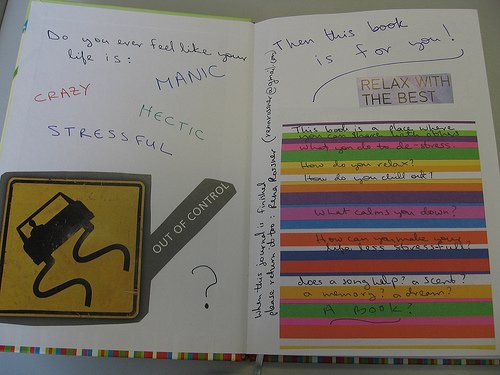 Do you ever feel like your
life is:
MANIC
CRAZY
HECTIC
STRESSFUL
OUT OF CONTROL
?
Then this book
is for you!
RELAX WITH
THE BEST
When this journal is finished
please return it too: Rena Rossner
This book is a place where
you can
what you do to de-stress.
How do you relax?
How do you chill out?
What calms you down?
How can you make your
life less stressful?
does a song help? a scent?
a memory? a dream?
A BOOK?